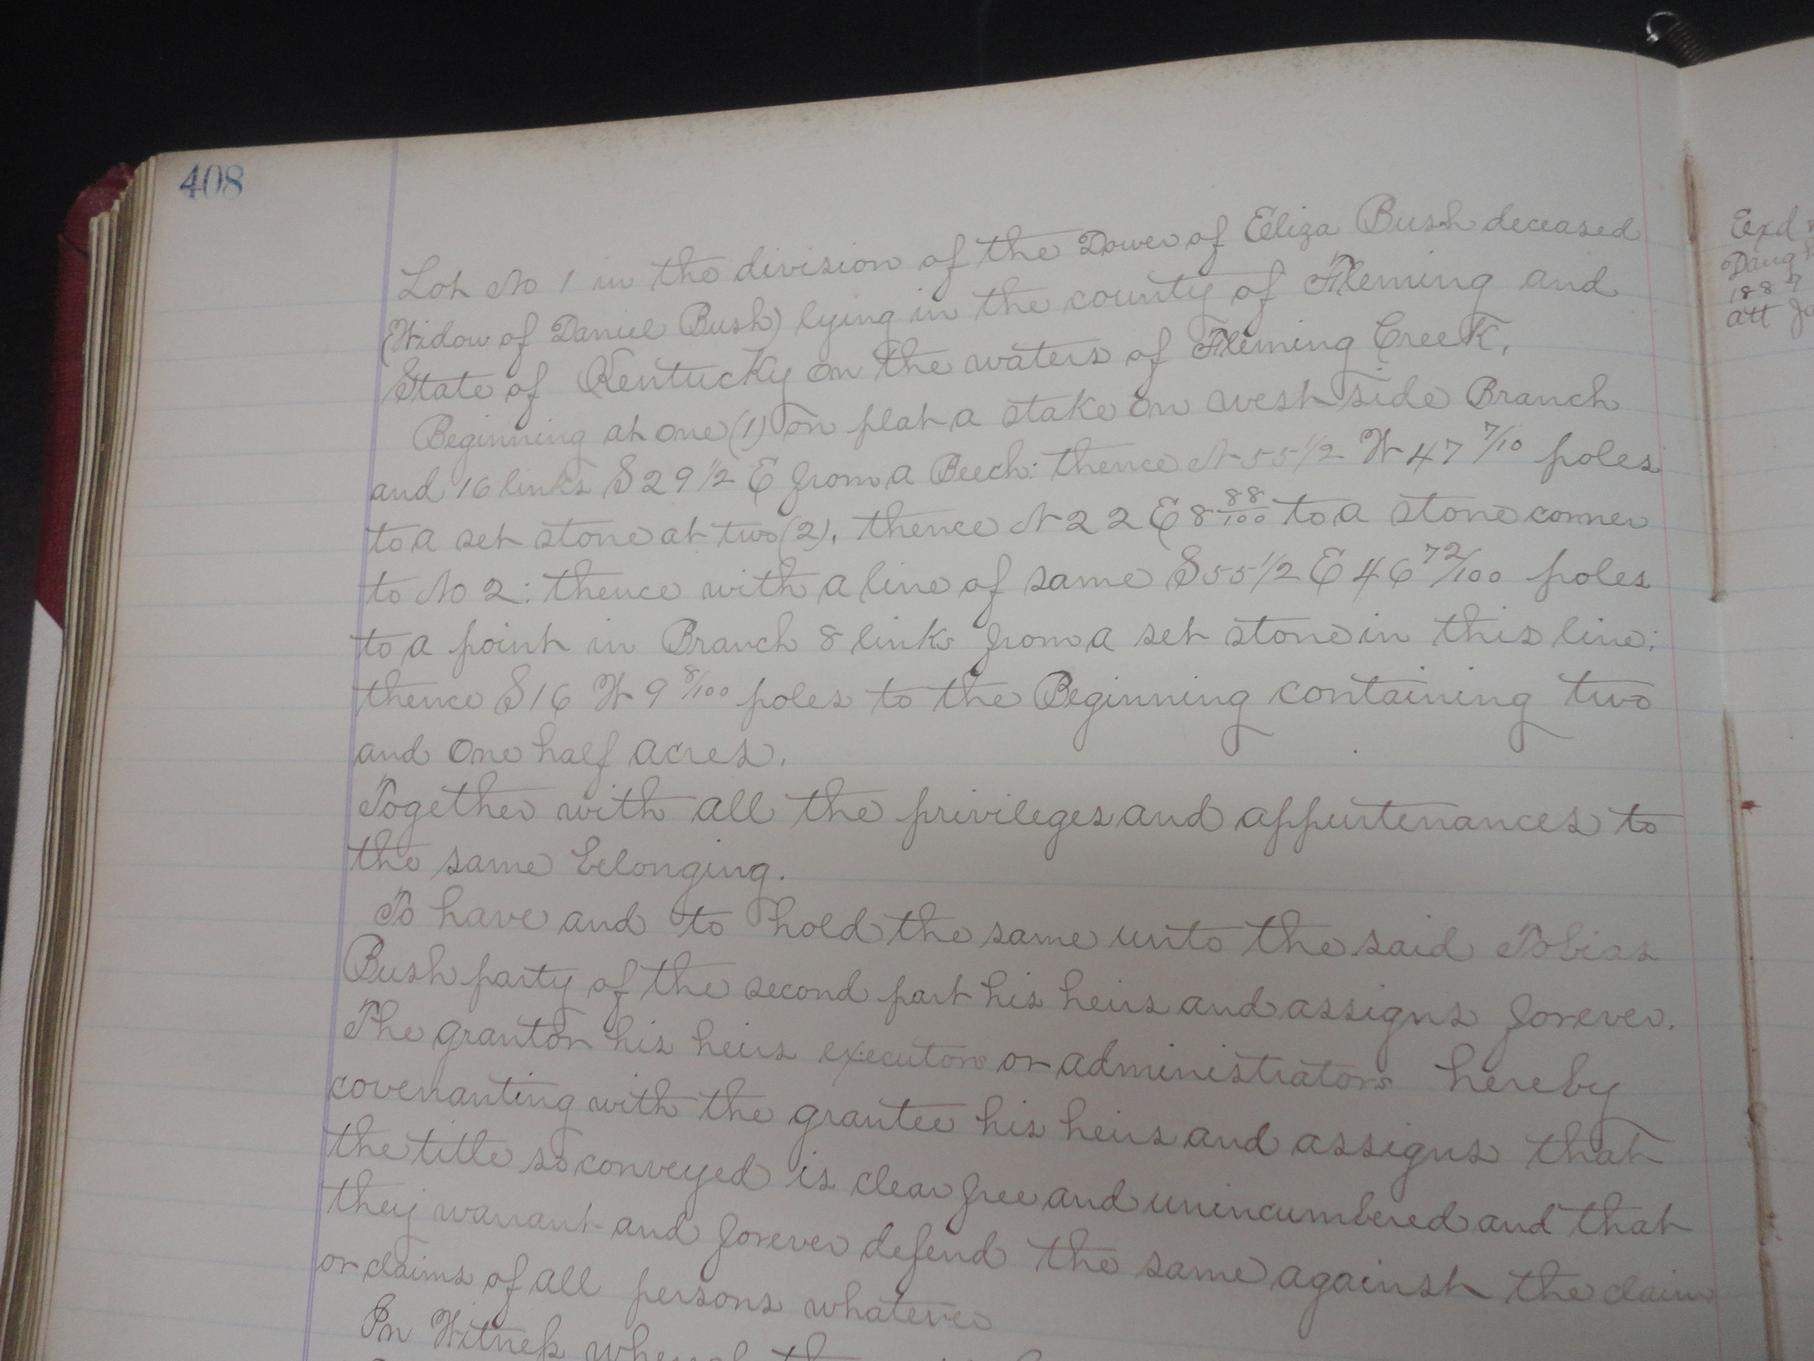 408
Lot No 1 in the division of the Dower of Eliza Bush deceased
(Widow of Daniel Bush) lying in the county of Fleming and
State of Kentucky on the waters of Fleming Creek.
Beginning at one (1) on plat a stake on west side Branch
and 16 links S 29 1/2 E from a Beech: thence N 55 1/2 W 47 7/10 poles
to a set stone at two (2), thence N 22 E 8 88/100 to a stone corner
to No 2: thence with a line of same S 55 1/2 E 46 72/100 poles
to a point in Branch 8 links from a set stone in this line:
thence S 16 W 9 8/100 poles to the Beginning containing two
and one half acres.
Together with all the privileges and appurtenances to
the same belonging.
To have and to hold the same unto the said Tobias
Bush party of the second part his heirs and assigns forever.
The grantor his heirs executors or administrators hereby
covenanting with the grantee his heirs and assigns that
the title so conveyed is clear free and unincumbered and that
they warrant and forever defend the same against the claim
or claims of all persons whatever
In Witness whereof
Exd
Daug
1887
att